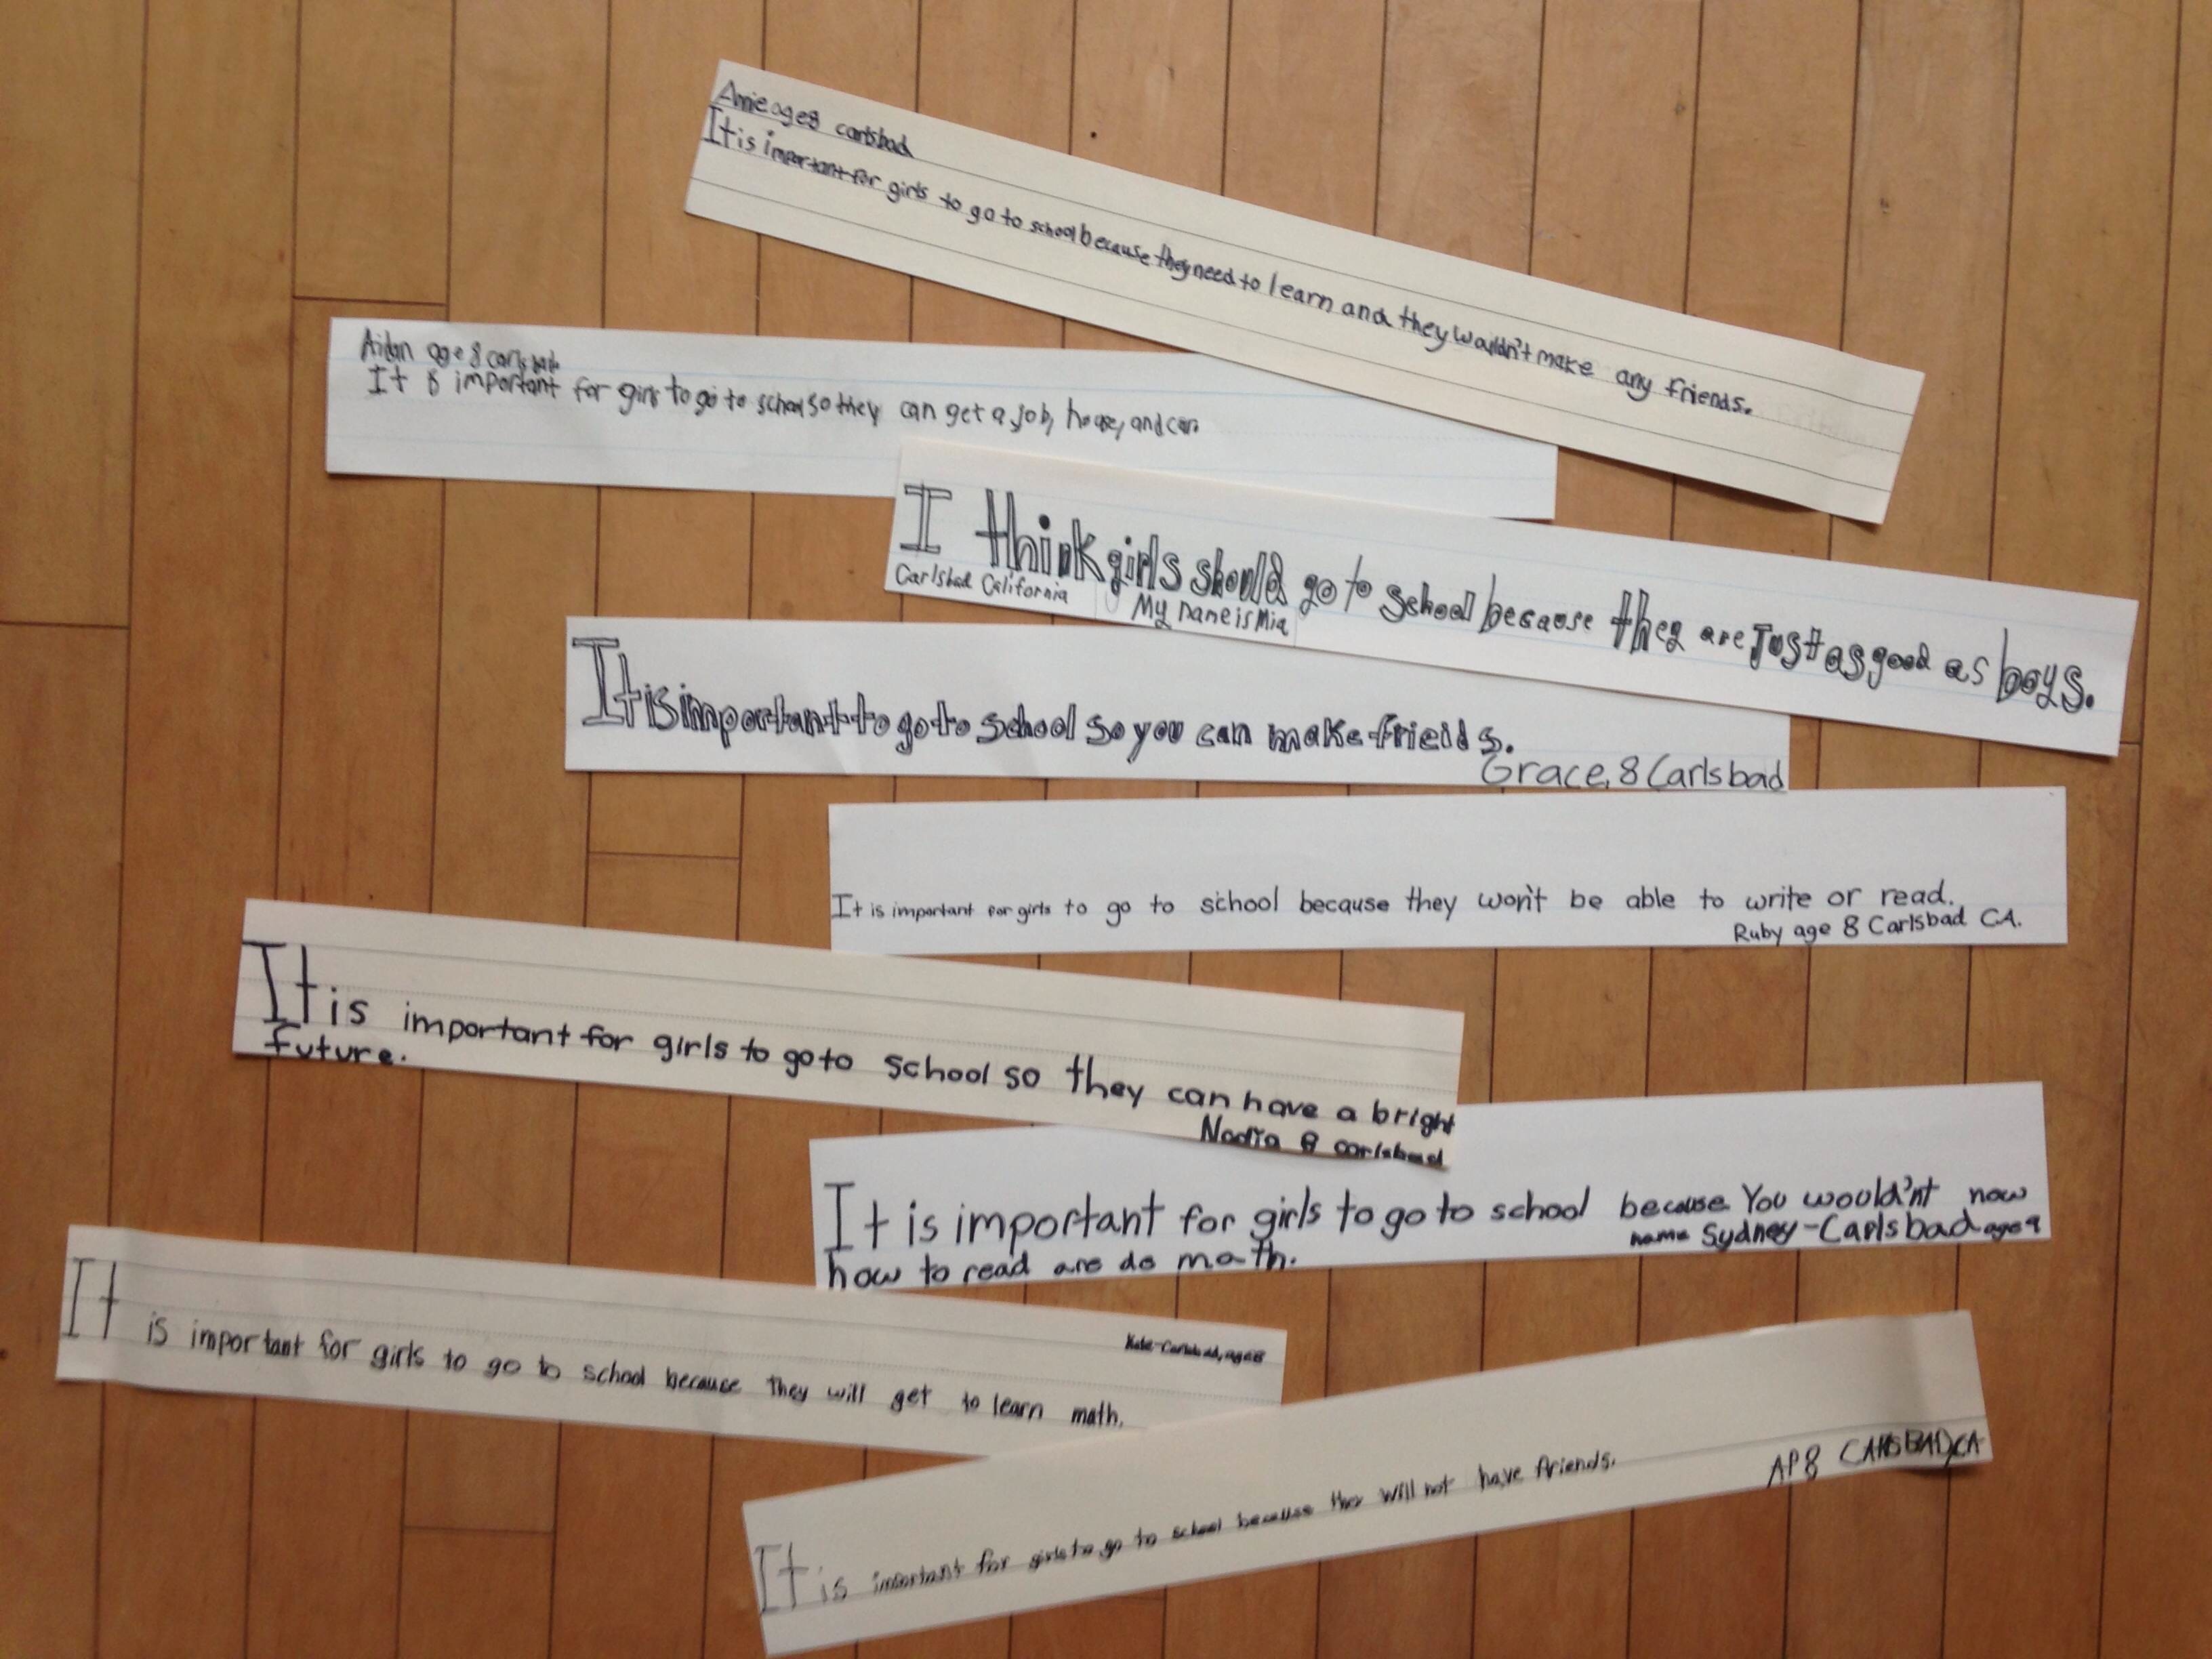 Annie age 8 carlsbad
It is important for girls to go to school because they need to learn and they wouldn't make any friends.
Aidan age 8 carlsbad
It is important for girls to go to school so they can get a job, house, and car.
I think girls should go to school because they are just as good as boys.
Carlsbad California
My name is Mia
It is important to go to school so you can make friends.
Grace, 8 Carlsbad
It is important for girls to go to school because they won't be able to write or read.
Ruby age 8 Carlsbad CA.
It is important for girls to go to school so they can have a bright
future.
Nadia 8 carlsbad
It is important for girls to go to school because You would'nt now
how to read are do math.
name Sydney-Carlsbad age 9
Kate-Carlsbad, age 8
It is important for girls to go to school because they will get to learn math.
It is important for girls to go to school because they will not have friends.
AP 8 CARLSBAD, CA